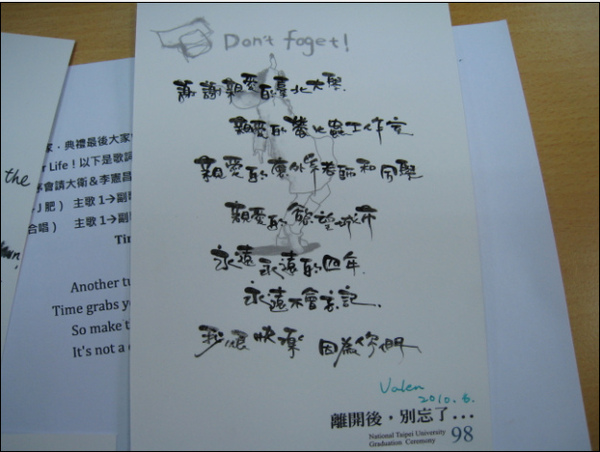 Don't foget!
謝謝親愛的臺北大學.
親愛的螢火蟲工作室
親愛的應外系老師和同學
親愛的慾望城市
永遠永遠的四年.
永遠不會忘記.
我很快樂 因為你們
Valen
2010.6.
離開後,別忘了...
National Taipei University
Graduation Ceremony 98
the
家.典禮最後大家
r Life！以下是歌詞
會請大衛＆李憲昌
J 肥） 主歌 1→副
合唱） 主歌 1→副
Another
Time grabs
So make
It's not a